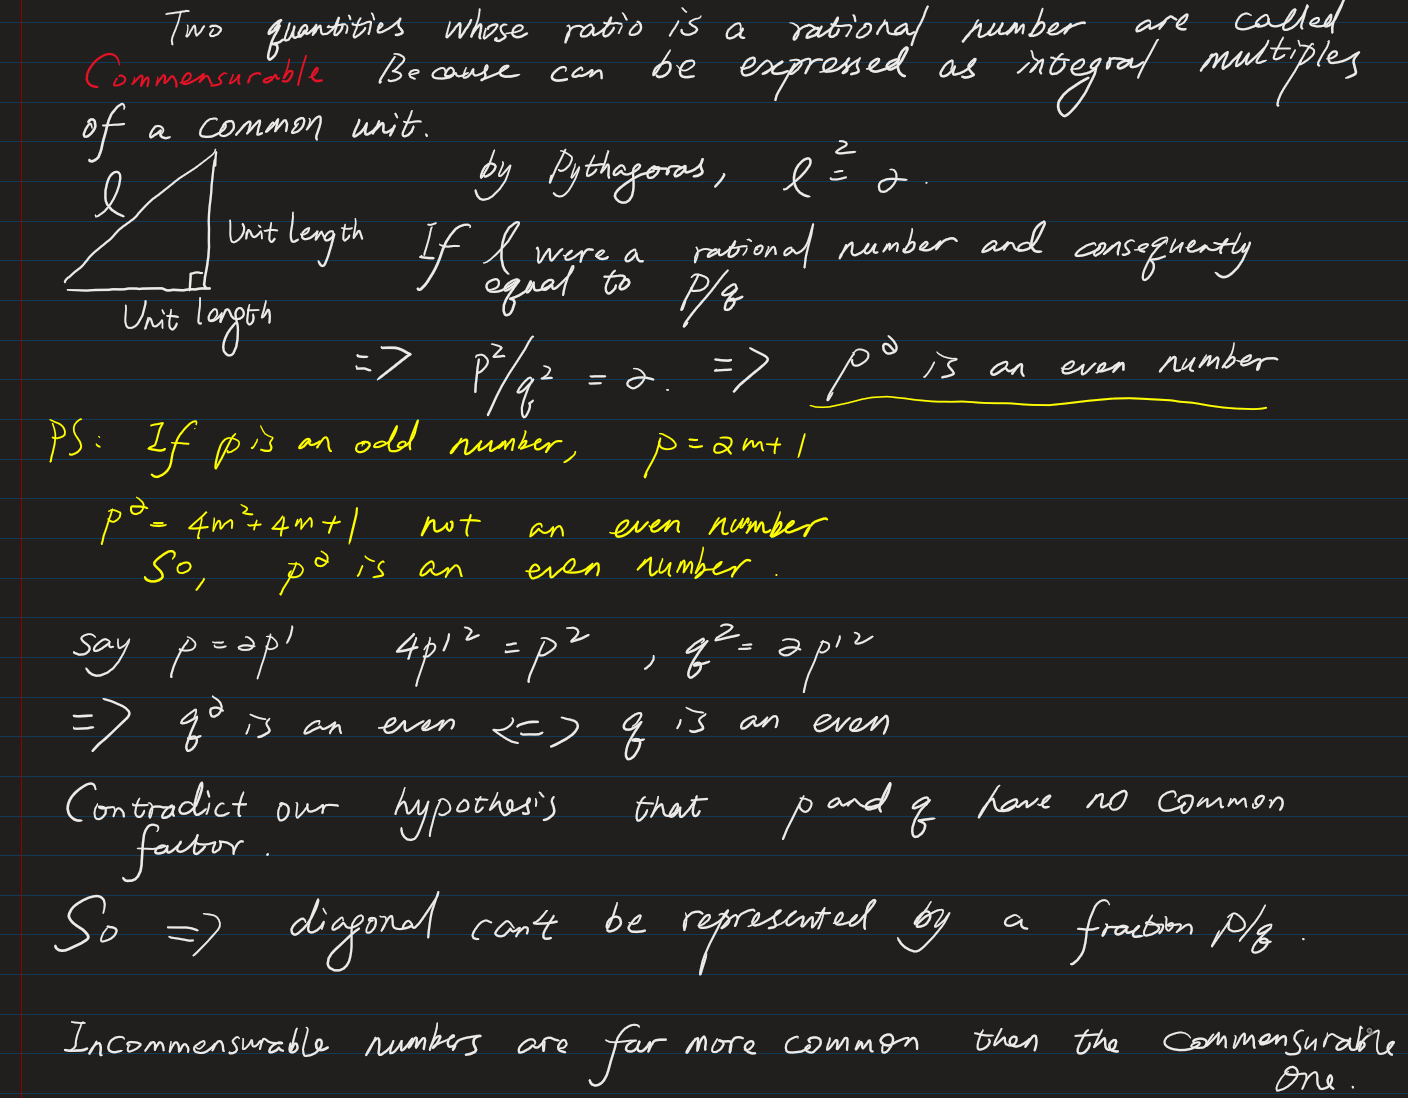 Two quantities whose ratio is a rational number are called
Commensurable Because can be expressed as integral multiples
of a common unit.
l
Unit length
Unit length
by Pythagoras, l² = 2.
If l were a rational number and consequently
equal to P/q
=> P²/q² = 2. => p² is an even number
PS: If p is an odd number, p = 2m+1
p² = 4m²+4m+1 not an even number
So, p² is an even number.
say p = 2p' 4p'² = p² , q² = 2p'²
=> q² is an even <=> q is an even
Contradict our hypothesis that p and q have no common
factor.
So => diagonal can't be represented by a fraction p/q.
Incommensurable numbers are far more common then the commensurable
one.